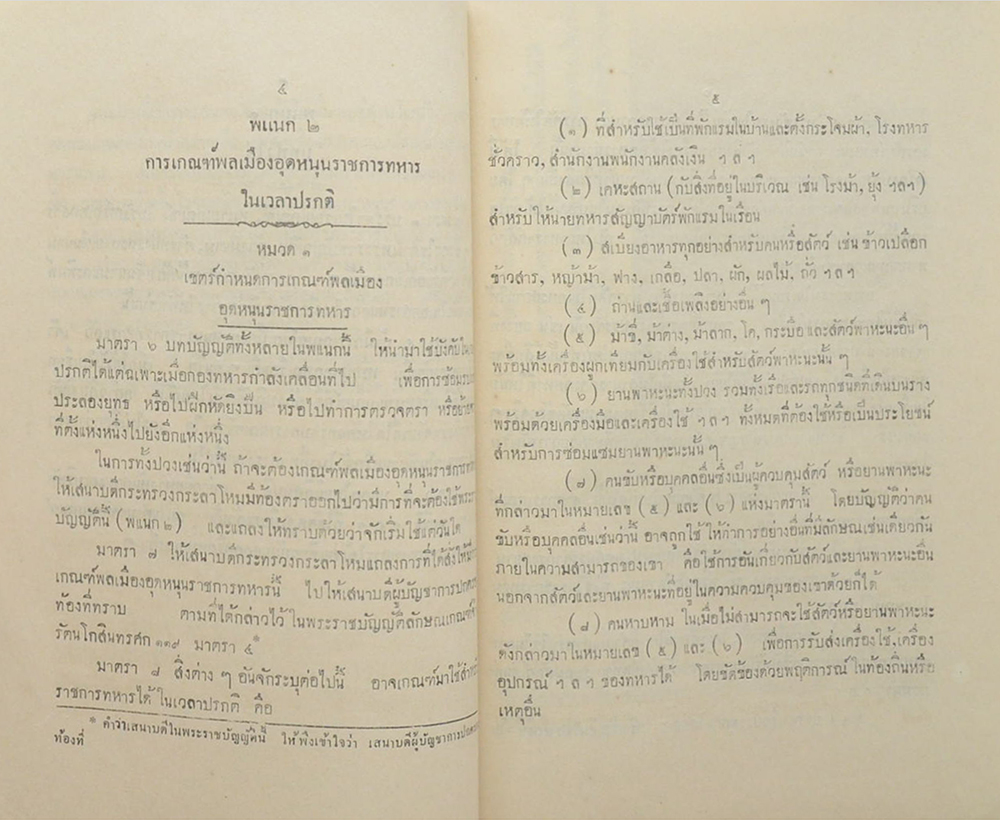 ๔
พแนก ๒
การเกณฑ์พลเมืองอุดหนุนราชการทหาร
ในเวลาปรกติ
หมวด ๑
เขตร์กำหนดการเกณฑ์พลเมือง
อุดหนุนราชการทหาร
มาตรา ๖ บทบัญญัติทั้งหลายในพแนกนี้ ให้นำมาใช้บังคับใน
ปรกติได้แต่ฉเพาะเมื่อกองทหารกำลังเคลื่อนที่ไป เพื่อการซ้อมรบ
ประลองยุทธ หรือไปฝึกหัดยิงปืน หรือไปทำการตรวจตรา หรือย้าย
ที่ตั้งแห่งหนึ่งไปยังอีกแห่งหนึ่ง
ในการทั้งปวงเช่นว่านี้ ถ้าจะต้องเกณฑ์พลเมืองอุดหนุนราชการ
ให้เสนาบดีกระทรวงกระลาโหมมีท้องตราออกไปว่ามีการที่จะต้องใช้พระ
บัญญัตินี้ (พแนก ๒) และแถลงให้ทราบด้วยว่าจักเริ่มใช้แต่วันใด
มาตรา ๗ ให้เสนาบดีกระทรวงกระลาโหมแถลงการที่ได้สั่งให้มี
เกณฑ์พลเมืองอุดหนุนราชการทหารนี้ ไปให้เสนาบดีผู้บัญชาการปก
ท้องที่ทราบ ตามที่ได้กล่าวไว้ในพระราชบัญญัติลักษณเกณฑ์
รัตนโกสินทรศก ๑๑๙ มาตรา ๔ *
มาตรา ๘ สิ่งต่าง ๆ อันจักระบุต่อไปนี้ อาจเกณฑ์มาใช้สำ
ราชการทหารได้ ในเวลาปรกติ คือ
* คำว่าเสนาบดีในพระราชบัญญัตินี้ ให้พึงเข้าใจว่า เสนาบดีผู้บัญชาการปก
ท้องที่
๕
(๑) ที่สำหรับใช้เป็นที่พักแรมในบ้านและตั้งกระโจมผ้า, โรงทหาร
ชั่วคราว, สำนักงานพนักงานคลังเงิน ฯลฯ
(๒) เคหะสถาน (กับสิ่งที่อยู่ในบริเวณ เช่น โรงม้า, ยุ้ง ฯลฯ)
สำหรับให้นายทหารสัญญาบัตร์พักแรมในเรือน
(๓) สเบียงอาหารทุกอย่างสำหรับคนหรือสัตว์ เช่นข้าวเปลือก
ข้าวสาร, หญ้าม้า, ฟาง, เกลือ, ปลา, ผัก, ผลไม้, ถั่ว ฯลฯ
(๔) ถ่านและเชื้อเพลิงอย่างอื่น ๆ
(๕) ม้าขี่, ม้าต่าง, ม้าลาก, โค, กระบือ และสัตว์พาหะนะอื่น ๆ
พร้อมทั้งเครื่องผูกเทียมกับเครื่องใช้สำหรับสัตว์พาหะนะนั้น ๆ
(๖) ยานพาหะนะทั้งปวง รวมทั้งเรือและรถทุกชนิดที่เดินบนราง
พร้อมด้วยเครื่องมือและเครื่องใช้ ฯลฯ ทั้งหมดที่ต้องใช้หรือเป็นประโยชน์
สำหรับการซ่อมแซมยานพาหะนะนั้น ๆ
(๗) คนขับหรือบุคคลอื่นซึ่งเป็นผู้ควบคุมสัตว์ หรือยานพาหะนะ
ที่กล่าวมาในหมายเลข (๕) และ (๖) แห่งมาตรานี้ โดยบัญญัติว่าคน
ขับหรือบุคคลอื่นเช่นว่านี้ อาจถูกใช้ ให้ทำการอย่างอื่นที่มีลักษณเช่นเดียวกัน
ภายในความสามารถของเขา คือใช้การอันเกี่ยวกับสัตว์และยานพาหะนะอื่น
นอกจากสัตว์และยานพาหะนะที่อยู่ในความควบคุมของเขาด้วยก็ได้
(๘) คนหาบหาม ในเมื่อไม่สามารถจะใช้สัตว์หรือยานพาหะนะ
ดังกล่าวมาในหมายเลข (๕) และ (๖) เพื่อการรับส่งเครื่องใช้, เครื่อง
อุปกรณ์ ฯลฯ ของทหารได้ โดยขัดข้องด้วยพฤติการณ์ ในท้องถิ่นหรือ
เหตุอื่น